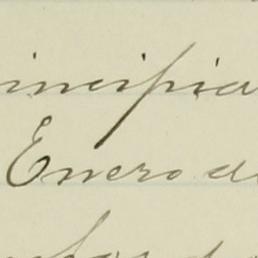 incipia
Enero de